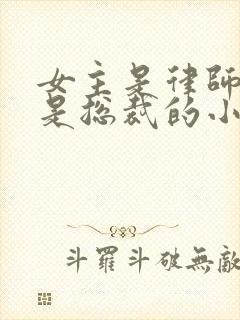 女主是律師
是総裁的小
斗羅斗破無敵